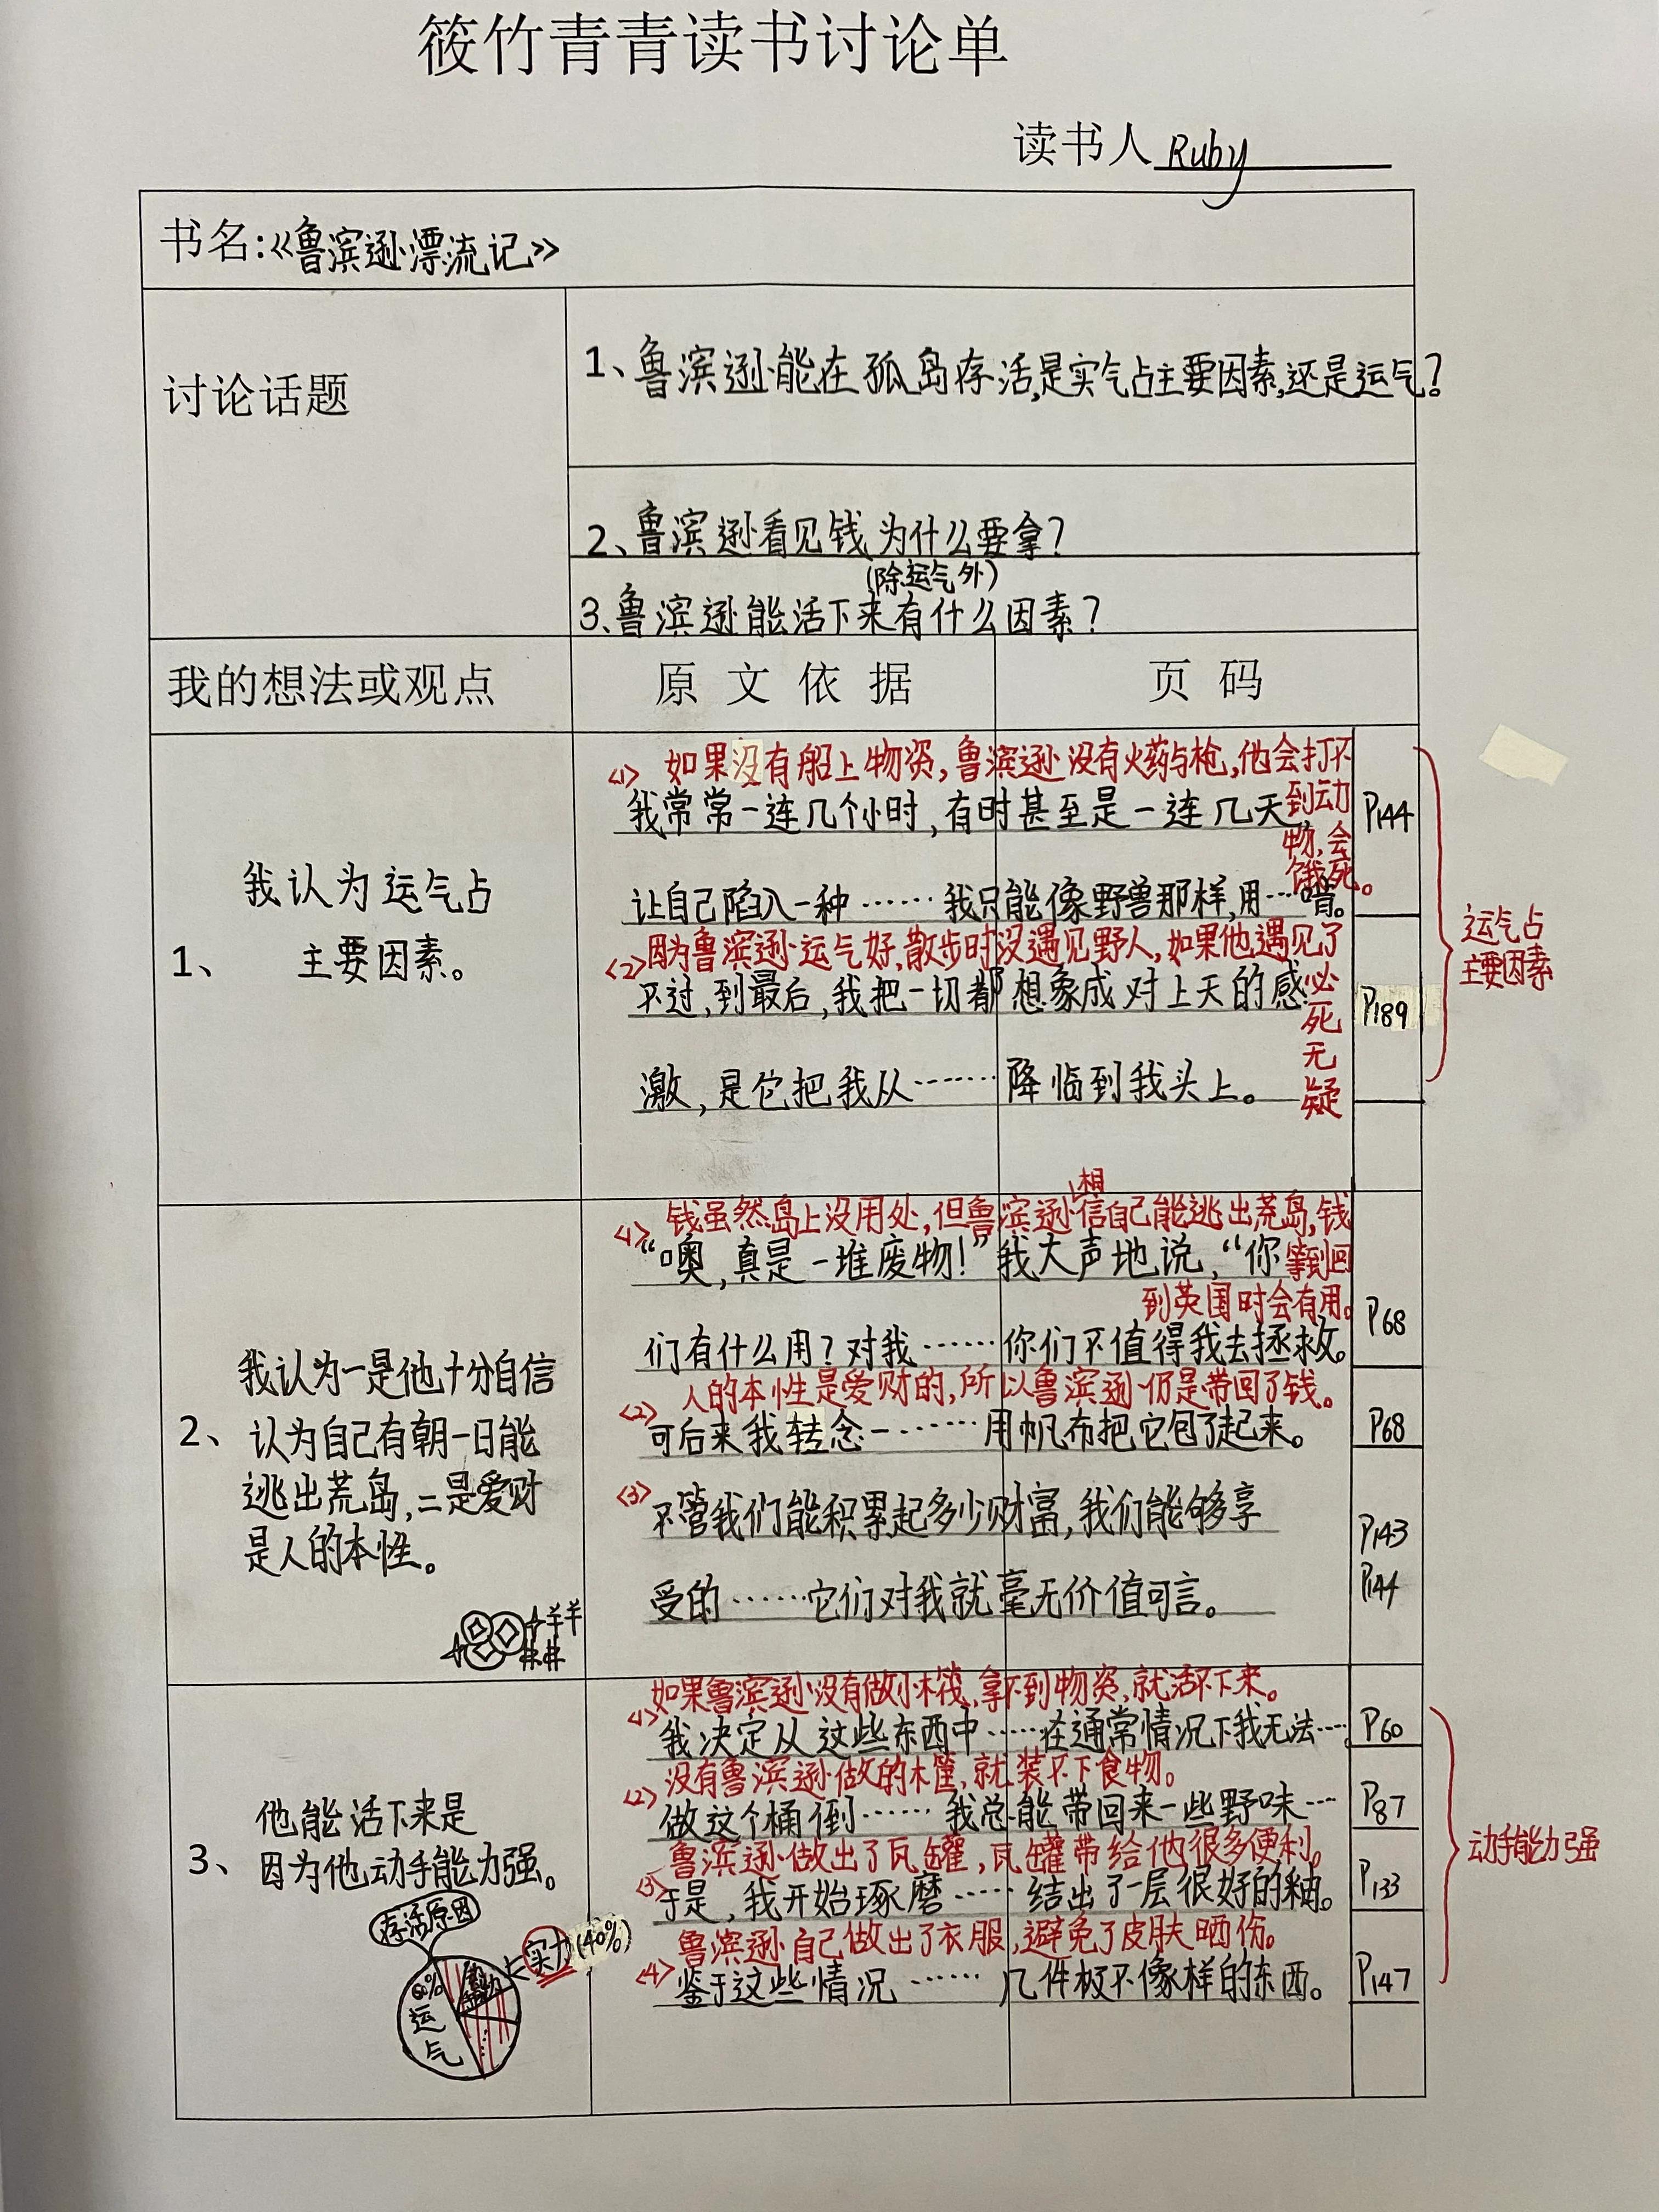 筱竹青青读书讨论单
读书人 Ruby
书名:《鲁滨逊漂流记》
讨论话题
1、鲁滨逊能在孤岛存活,是实气占主要因素,还是运气?
2、鲁滨逊看见钱为什么要拿?
(除运气外)
3、鲁滨逊能活下来有什么因素?
我的想法或观点 原文依据 页码
1、我认为运气占
主要因素。
<1> 如果没有船上物资,鲁滨逊没有火药与枪,他会打不
到动
物,会
饿死。
我常常一连几个小时,有时甚至是一连几天
让自己陷入一种……我只能像野兽那样,用…啃。
P144
<2> 因为鲁滨逊运气好,散步时没遇见野人,如果他遇见了
必
死
无
疑
不过,到最后,我把一切都想象成对上天的感
激,是它把我从……降临到我头上。
P189
运气占
主要因素
2、我认为一是他十分自信
认为自己有朝一日能
逃出荒岛,二是爱财
是人的本性。
<1> 钱虽然岛上没用处,但鲁滨逊相信自己能逃出荒岛,钱
等到回
到英国时会有用。
“噢,真是一堆废物!”我大声地说,“你
们有什么用?对我……你们不值得我去拯救。
P68
人的本性是爱财的,所以鲁滨逊仍是带回了钱。
<2> 可后来我转念一……用帆布把它包了起来。
P68
<3> 不管我们能积累起多少财富,我们能够享
受的……它们对我就毫无价值可言。
P143
P144
3、他能活下来是
因为他动手能力强。
存活原因
实力(40%)
60%
运
气
如果鲁滨逊没有做小木筏,拿不到物资,就活不下来。
<1> 我决定从这些东西中……在通常情况下我无法…
P60
没有鲁滨逊做的木筐,就装不下食物。
<2> 做这个桶倒……我总能带回来一些野味…
P87
鲁滨逊做出了瓦罐,瓦罐带给他很多便利。
<3> 于是,我开始琢磨……结出了一层很好的釉。
P133
鲁滨逊自己做出了衣服,避免了皮肤晒伤。
<4> 鉴于这些情况……几件极不像样的东西。
P147
动手能力强